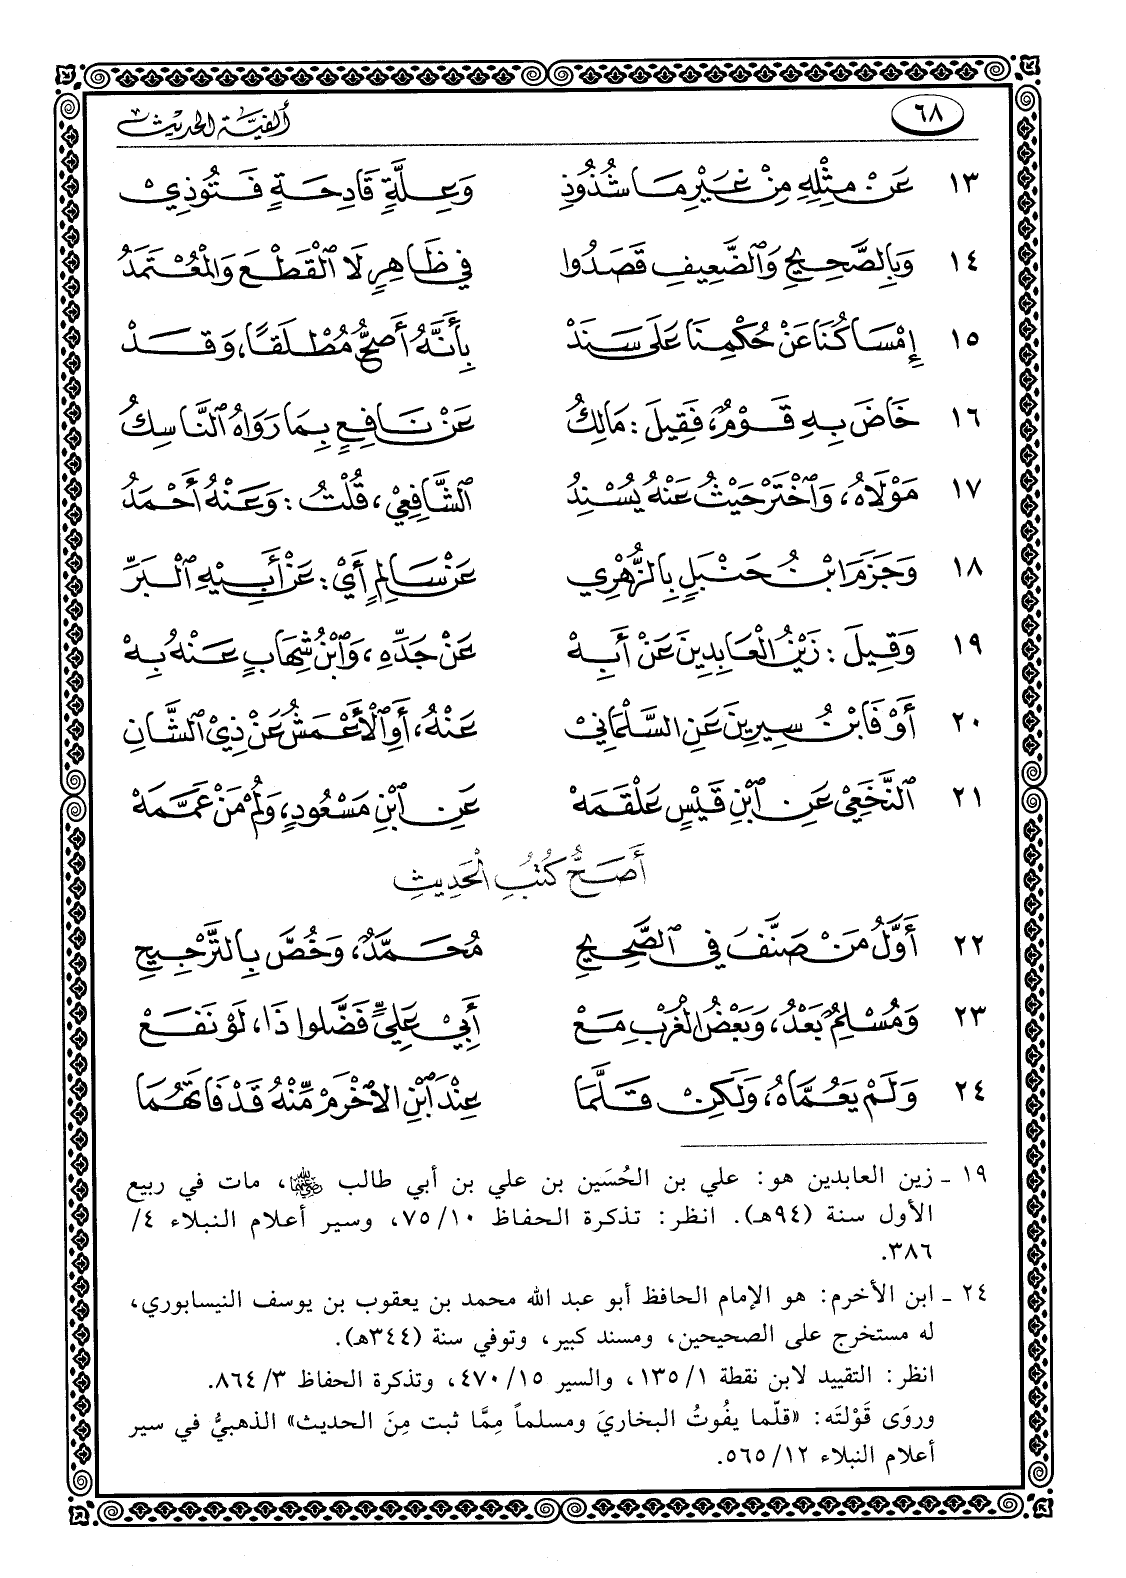 ٦٨ ألفية الحديث
١٣ عَنْ مِثْلِهِ مِنْ غَيْرِ مَا شُذُوذِ وَعِلَّةٍ قَادِحَةٍ فَتُوذِي
١٤ وَبِالصَّحِيحِ وَٱلضَّعِيفِ قَصَدُوا فِي ظَاهِرٍ لَا ٱلْقَطْعَ وَالْمُعْتَمَدُ
١٥ إِمْسَاكُنَا عَنْ حُكْمِنَا عَلَى سَنَدْ بِأَنَّهُ أَصَحُّ مُطْلَقًا، وَقَدْ
١٦ خَاضَ بِهِ قَوْمٌ، فَقِيلَ: مَالِكُ عَنْ نَافِعٍ بِمَا رَوَاهُ ٱلنَّاسِكُ
١٧ مَوْلَاهُ، وَٱخْتَرْ حَيْثُ عَنْهُ يُسْنِدُ ٱلشَّافِعِي، قُلْتُ: وَعَنْهُ أَحْمَدُ
١٨ وَجَزَمَ ابْنُ حَنْبَلٍ بِالزُّهْرِي عَنْ سَالِمٍ أَيْ: عَنْ أَبِيهِ ٱلْبَرِّ
١٩ وَقِيلَ: زَيْنُ الْعَابِدِينَ عَنْ أَبِهْ عَنْ جَدِّهِ، وَٱبْنُ شِهَابٍ عَنْهُ بِهْ
٢٠ أَوْ فَابْنُ سِيرِينَ عَنِ السَّلْمَانِيْ عَنْهُ، أَوِ ٱلْأَعْمَشُ عَنْ ذِي ٱلشَّانِ
٢١ ٱلنَّخَعِيْ عَنِ ٱبْنِ قَيْسٍ عَلْقَمَهْ عَنِ ٱبْنِ مَسْعُودٍ، وَلُمْ مَنْ عَمَّمَهْ
أَصَحُّ كُتُبِ الْحَدِيثِ
٢٢ أَوَّلُ مَنْ صَنَّفَ فِي ٱلصَّحِيحِ مُحَمَّدٌ، وَخُصَّ بِالتَّرْجِيحِ
٢٣ وَمُسْلِمٌ بَعْدُ، وَبَعْضُ الْغَرْبِ مَعْ أَبِيْ عَلِيٍّ فَضَّلُوا ذَا، لَوْ نَفَعْ
٢٤ وَلَمْ يَعُمَّاهُ، وَلَكِنْ قَلَّمَا عِنْدَ ٱبْنِ ٱلْأَخْرَمِ مِنْهُ قَدْ فَاتَهُمَا
١٩ ـ زين العابدين هو: علي بن الحُسَين بن علي بن أبي طالب ﵃، مات في ربيع
الأول سنة (٩٤هـ). انظر: تذكرة الحفاظ ٧٥/١٠، وسير أعلام النبلاء ٤/
٣٨٦.
٢٤ ـ ابن الأخرم: هو الإمام الحافظ أبو عبد الله محمد بن يعقوب بن يوسف النيسابوري،
له مستخرج على الصحيحين، ومسند كبير، وتوفي سنة (٣٤٤هـ).
انظر: التقييد لابن نقطة ١٣٥/١، والسير ٤٧٠/١٥، وتذكرة الحفاظ ٨٦٤/٣.
وروَى قَوْلتَه: «قلّما يفُوتُ البخاريَ ومسلماً مِمَّا ثبت مِنَ الحديث» الذهبيُّ في سير
أعلام النبلاء ٥٦٥/١٢.